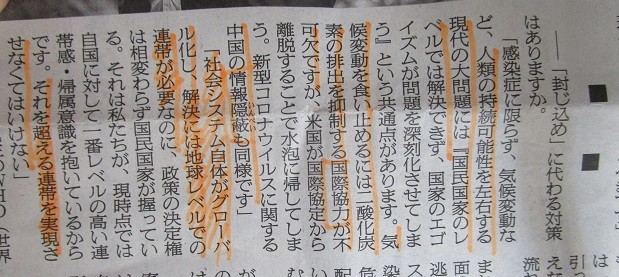 ――「封じ込め」に代わる対策
はありますか。
「感染症に限らず、気候変動な
ど、人類の持続可能性を左右する
現代の大問題には『国民国家のレ
ベルでは解決できず、国家のエゴ
イズムが問題を深刻化させてしま
う』という共通点があります。気
候変動を食い止めるには二酸化炭
素の排出を抑制する国際協力が不
可欠ですが、米国が国際協定から
離脱することで水泡に帰してしま
う。新型コロナウイルスに関する
中国の情報隠蔽も同様です」
いんぺい
「社会システム自体がグローバ
ル化し、解決には地球レベルでの
連帯が必要なのに、政策の決定権
は相変わらず国民国家が握ってい
る。それは私たちが、現時点では
自国に対して一番レベルの高い連
帯感・帰属意識を抱いているから
です。それを超える連帯を実現さ
せなくてはいけない」
WHO(世界